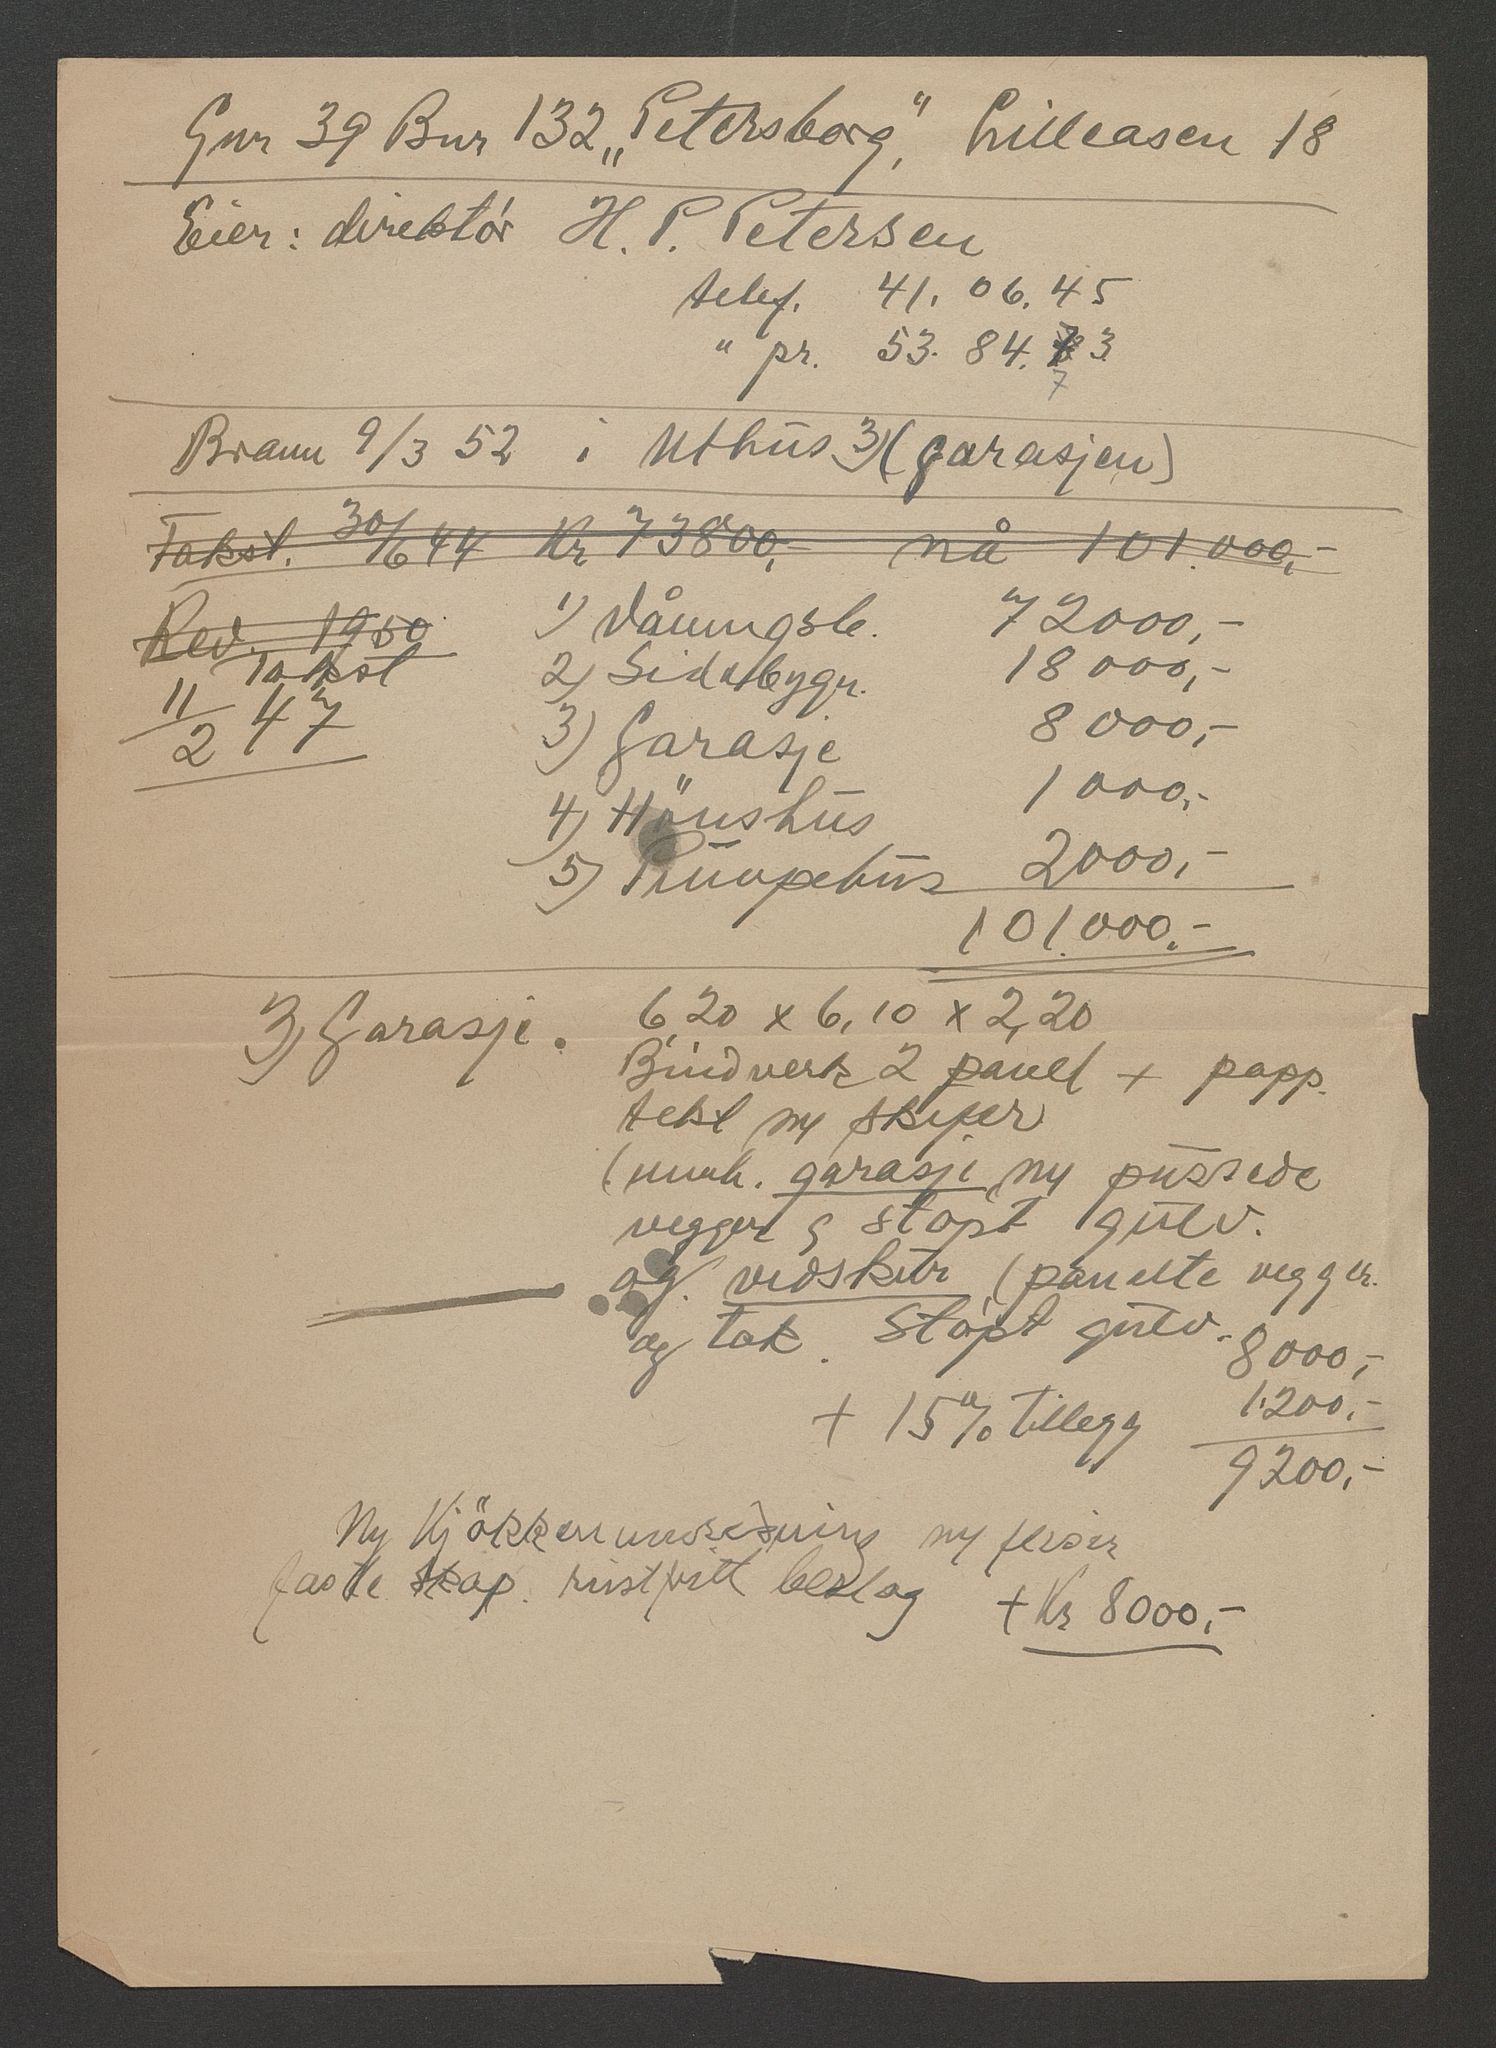 Gnr 39 Bnr 132 „Petersborg", Lilleasen 18
Eier: direktör H. P. Petersen
telef. 41. 06. 45
" pr. 53. 84. 73
7
Brann 9/3 52 i Uthus 3) (garasjen)
Takst. 30/6 44 Kr 73800,- nå 101.000,-
Rev. 1950
Takst
11/2 47
1) Våningsb. 72000,-
2) Sidebygn. 18000,-
3) Garasje 8000,-
4) Hönshus 1000,-
5) Pumpehus 2000,-
101.000,-
3) Garasje. 6,20 x 6,10 x 2,20
Bindverk 2 panel + papp.
tekt ny skifer
(innh. garasje ny pussede
vegger g stöpt gulv.
og. vedskur (panelte vegger.
og tak. Stöpt gulv. 8000,-
+ 15% tillegg 1.200,-
9200,-
Ny Kjökkeninnredning ny
faste skap. rustfritt beslag + Kr 8000,-